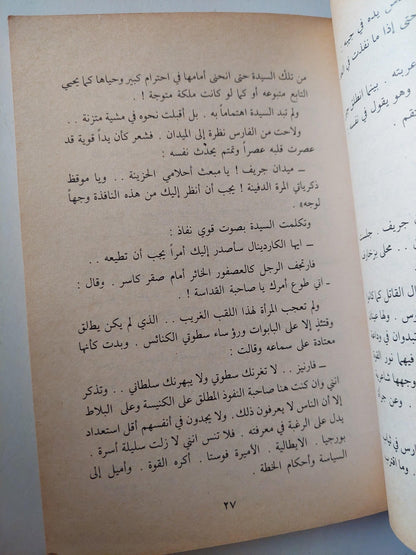 من تلك السيدة حتى انحنى أمامها في احترام كبير وحياها كما يحيي
التابع متبوعه أو كما لو كانت ملكة متوجة ! .
ولم تبد السيدة اهتماماً به . بل أقبلت نحوه في مشية متزنة .
ولاحت من الفارس نظرة إلى الميدان . فشعر كأن يداً قوية قد
عصرت قلبه عصراً وتمتم يحدّث نفسه :
ــ ميدان جريف . يا مبعث أحلامي الحزينة . ويا موقظ
ذكرياتي المرة الدفينة ! يجب أن أنظر إليك من هذه النافذة وجهاً
لوجه» .
وتكلمت السيدة بصوت قوي نفاذ :
ــ ايها الكاردينال سأصدر إليك أمراً يجب أن تطيعه . .
فارتجف الرجل كالعصفور الخائر أمام صقر كاسر . وقال :
ــ اني طوع أمرك يا صاحبة القداسة ! .
ولم تعجب المرأة لهذا اللقب الغريب . . الذي لم يكن يطلق
وقتئذٍ إلا على البابوات ورؤساء سطوتي الكنائس . وبدت كأنها
معتادة على سماعه وقالت :
ــ فارنيز . . لا تغرنك سطوتي ولا يبهرنك سلطاني . . وتذكر
انني وان كنت هنا صاحبة النفوذ المطلق على الكنيسة وعلى البلاط
إلا أن الناس لا يعرفون ذلك. ولا يجدون في أنفسهم أقل استعداد
يدل على الرغبة في معرفته . فلا تنس انني لا زلت سليلة أسرة .
بورجيا . الايطالية . الأميرة فوستا . أكره القوة . وأميل إلى
السياسة وأحكام الخطة .
٢٧
س يده في جيبه
حتى إذا ما نفذت في
عربته . بينما انطلق
وهو يقول في نفسه
تقم .
جريف . جلست
محلى بزخارف
ال القاتل
فيها نور
وعن